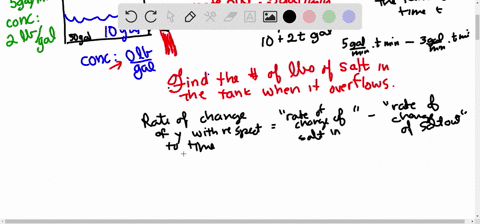 5gal/min
conc:
2 lb/gal
30gal
10 gal
conc: 0 lb/gal
time t
10 + 2t gal
5 gal/min · t min – 3 gal/min · t min
Find the # of lbs of salt in
the tank when it overflows.
Rate of change
of y with respect
to time
= "rate of change of salt in" – "rate of change of salt out"